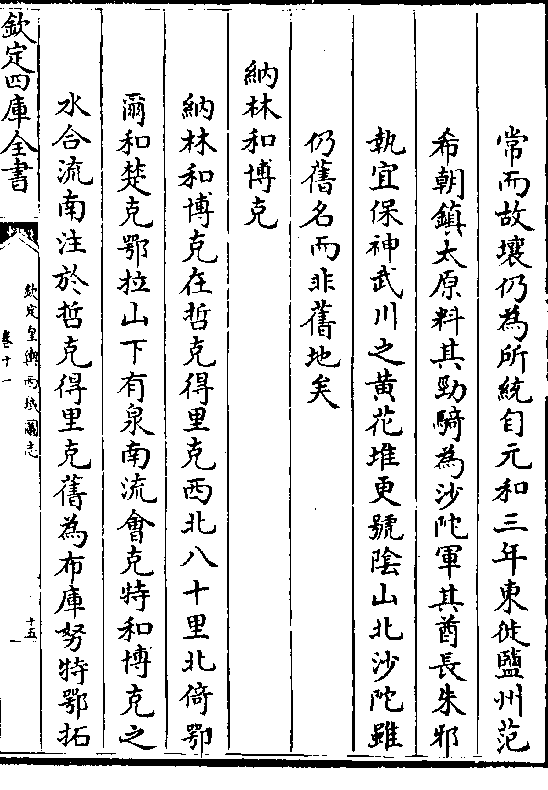 常而故壤仍為所統自元和三年東徙鹽州范
希朝鎮太原料其勁騎為沙陀軍其酋長朱邪
執宜保神武川之黄花堆更號陰山北沙陀雖
仍舊名而非舊地矣
納林和博克
納林和博克在哲克得里克西北八十里北倚鄂
爾和楚克鄂拉山下有泉南流會克特和博克之
水合流南注於哲克得里克舊為布庫努特鄂拓
欽定四庫全書
欽定皇輿西域圖志
卷十一
十五